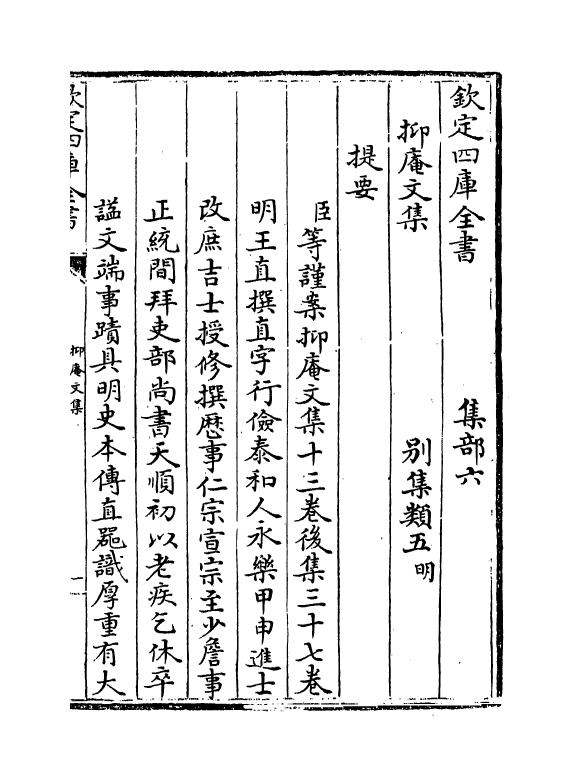 欽定四庫全書　集部六
抑庵文集　別集類五明
提要
臣等謹案抑庵文集十三卷後集三十七卷
明王直撰直字行儉泰和人永樂甲申進士
改庶吉士授修撰歴事仁宗宣宗至少詹事
正統間拜吏部尚書天順初以老疾乞休卒
諡文端事蹟具明史本傳直器識厚重有大
欽定四庫全書　抑庵文集　一